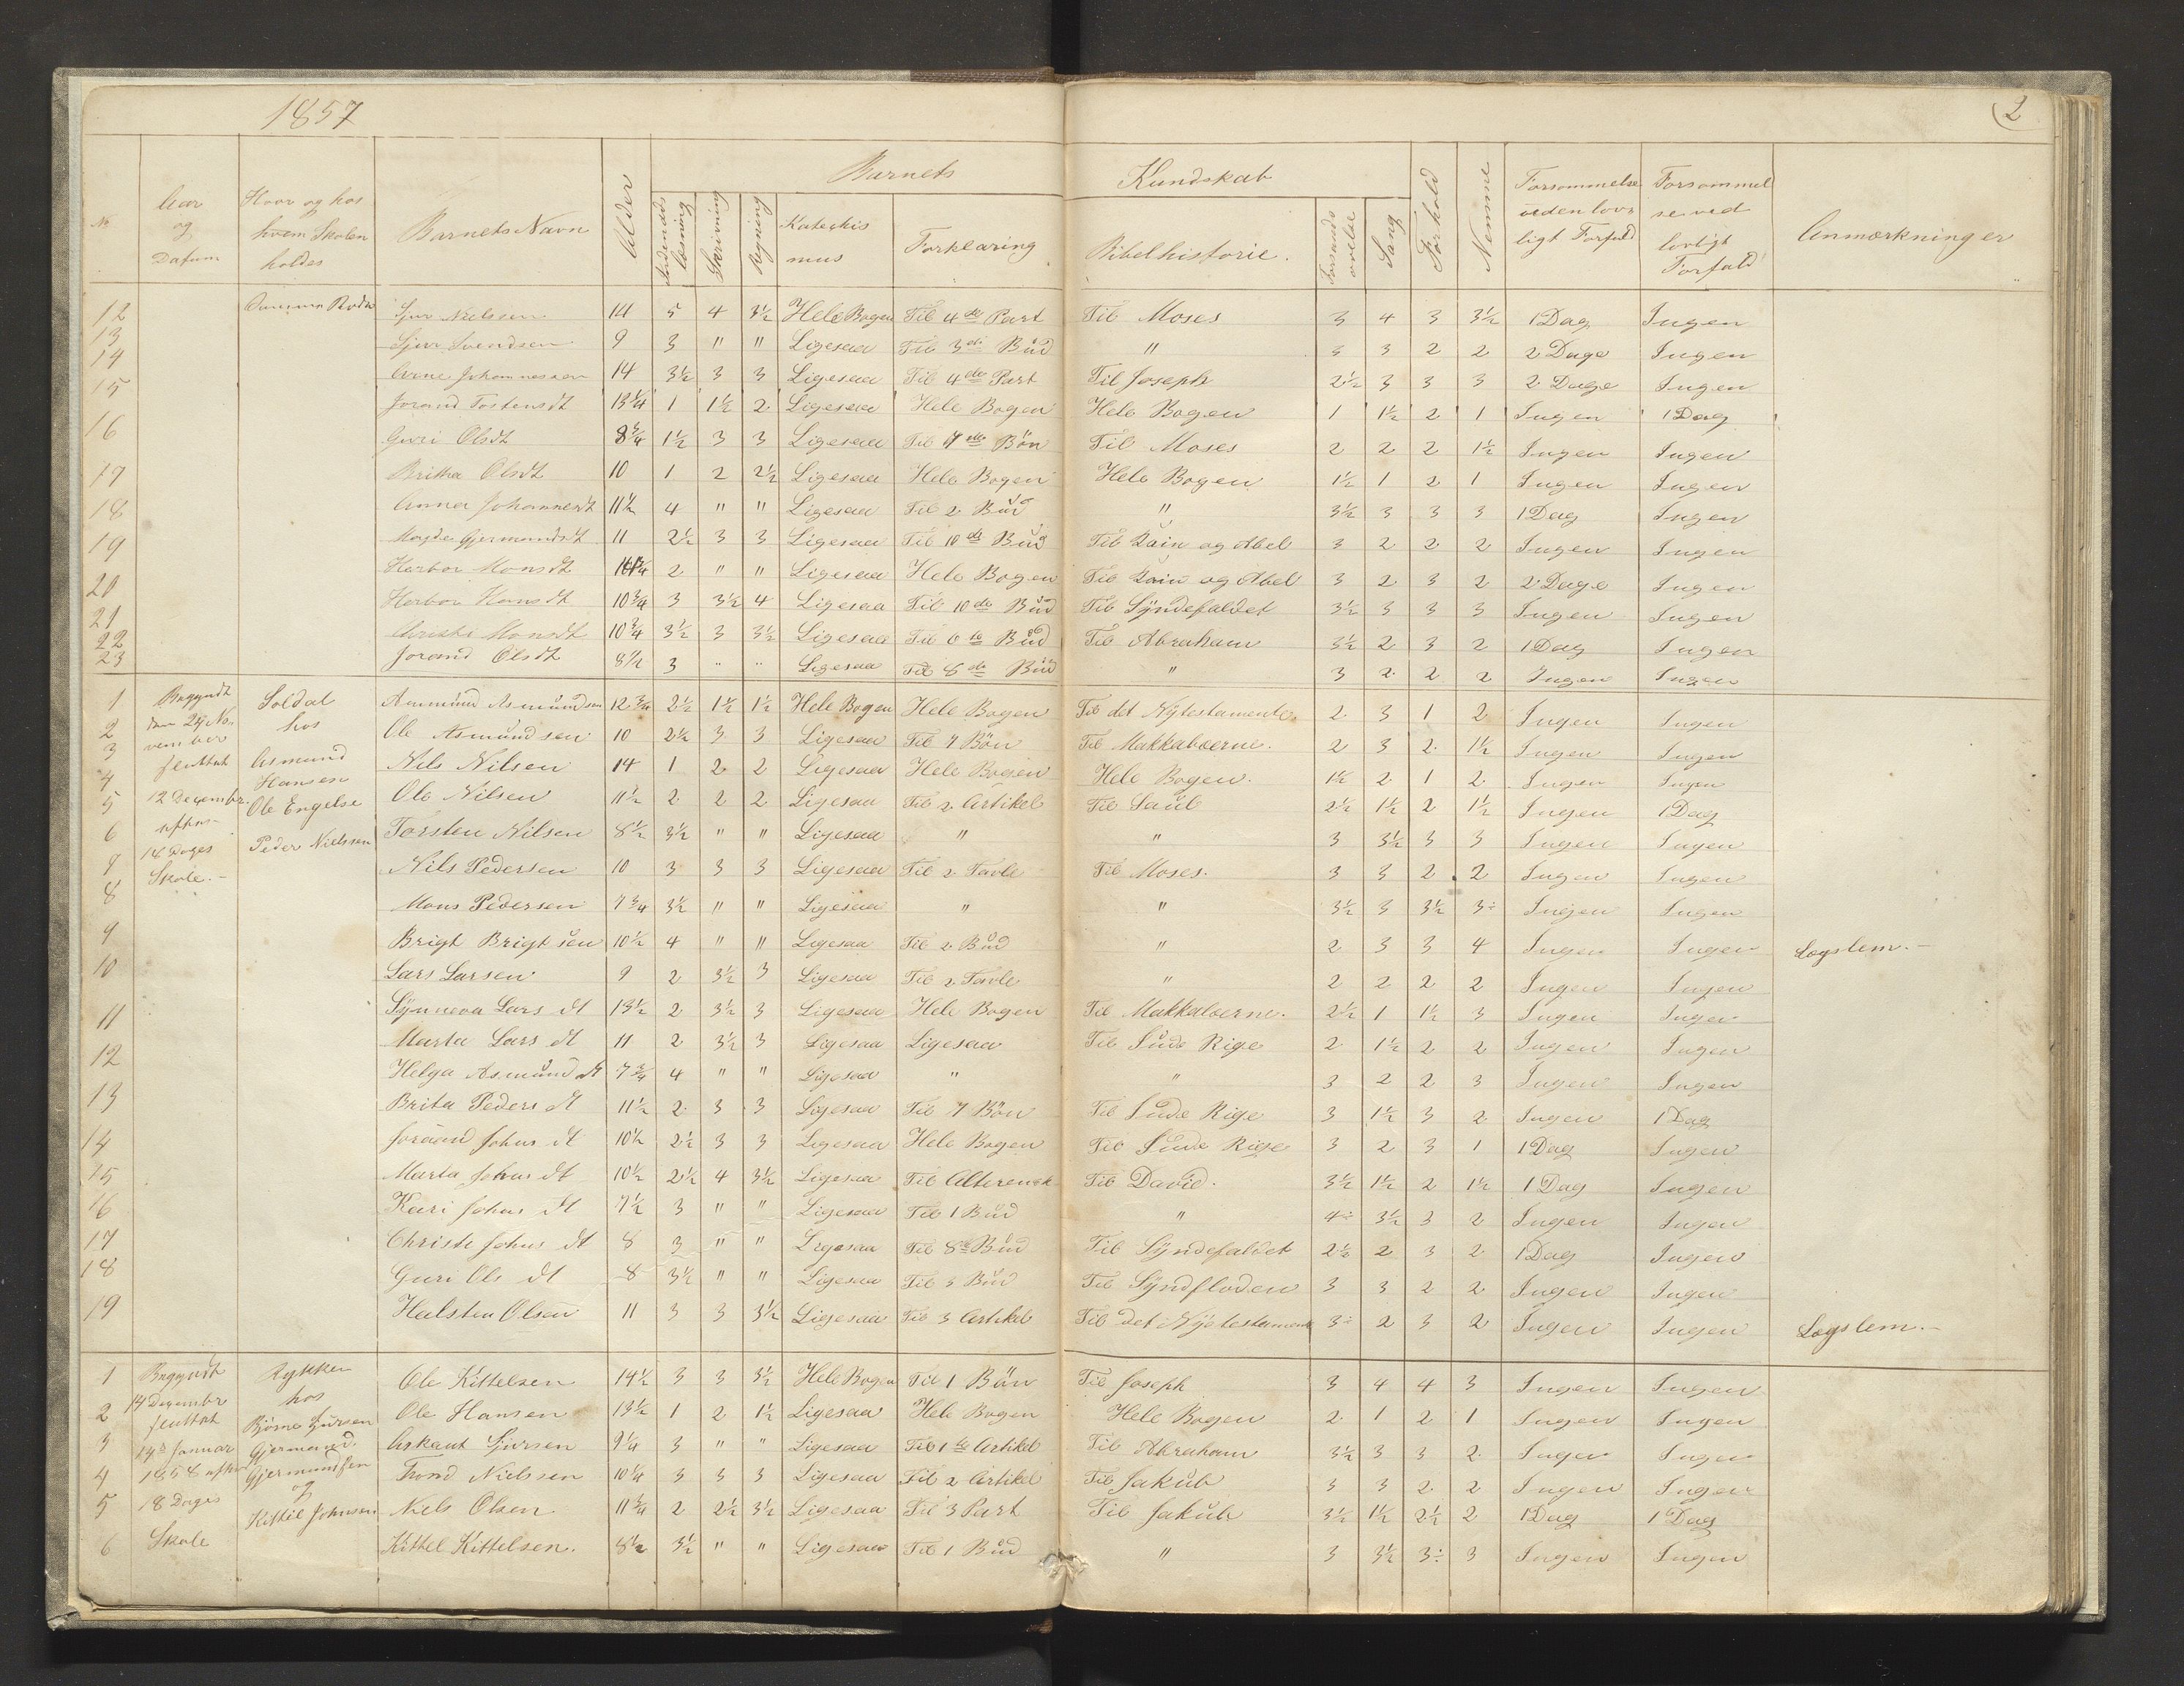 1857
2
Barnets Kundskab
No Aar og Datum Hvor og hos hvem Skolen holdes Barnets Navn Alder Indenadslæsning Skrivning Regning Katechismus Forklaring Bibelhistorie. Forstandsøvelse Sang Forhold Nemme Forsømmelse uden lovligt Forfald Forsømmelse ved lovligt Forfald Anmærkninger
12 Sjur Nielssen 14 5 4 3½ Hele Bogen Til 4de Part Til Moses 3 4 3 3½ 1 Dag Ingen
13 Sjur Svendsen 9 3 " " Ligesaa Til 3die Bud " 3 3 2 2 2 Dage Ingen
14 Arne Johannessen 14 3½ 3 3 Ligesaa Til 4de Part Til Joseph 2½ 3 3 3 2 Dage Ingen
15 Jorand Tostensdt 13¼ 1 1½ 2 Ligesaa Hele Bogen Hele Bogen 1 1½ 2 1 Ingen 1 Dag
16 Guri Olsdt 8¾ 1½ 3 3 Ligesaa Til 7de Bön Til Moses 2 2 2 1½ Ingen Ingen
17 Britha Olsdt 10 1 2 2½ Ligesaa Hele Bogen Hele Bogen 1½ 1 2 1 Ingen Ingen
18 Anna Johannesdt 11½ 4 " " Ligesaa Til 2 Bud " 3½ 3 3 3 1 Dag Ingen
19 Gjermundsdt 11 2½ 3 3 Ligesaa Til 10de Bud Til Kain og Abel 3 2 2 2 Ingen Ingen
20 Herbor Monsdt 2 " " Ligesaa Hele Bogen Til Kain og Abel 3 2 3 2 2 Dage Ingen
21 Herbor Hansdt 10¾ 3 3½ 4 Ligesaa Til 10de Bud Til Syndefaldet 3½ 3 3 3 Ingen Ingen
22 Christi Monsdt 10¾ 3½ 3 3½ Ligesaa Til Bud Til Abraham 3½ 2 3 2 1 Dag Ingen
23 Jorand Olsdt 8½ 3 " " Ligesaa Til 8de Bud " 3 2 2 2 Ingen Ingen
1 Begyndt Soldal Ammund Asmundsen 12¾ 2½ 1½ 1½ Hele Bogen Hele Bogen Til det Nytestamente. 2 3 1 2 Ingen Ingen
2 den 24 No- hos Ole Asmundsen 10 2½ 3 3 Ligesaa Til 7 Bön Til Makkabæerne. 2 3 2 1½ Ingen Ingen
3 vember sluttet Asmund Nils Nilsen 14 1 2 2 Ligesaa Hele Bogen Hele Bogen. 1½ 2 1 2 Ingen Ingen
4 Hansen Ole Nilsen 11½ 2 2 2 Ligesaa Til 2 Artikel Til Saul 2½ 1½ 2 1½ Ingen 1 Dag
5 12 Decembr. Ole Engelse Torsten Nilsen 8½ 3½ " " Ligesaa " " 3 3½ 3 3 Ingen Ingen
6 14 Dages Peder Nielssen Nils Pedersen 10 3 3 3 Ligesaa Til 2 Tavle Til Moses. 3 3 2 2 Ingen Ingen
7 Skole.- Mons Pedersen 7¾ 3½ " " Ligesaa " " 3½ 3 3½ 3÷ Ingen Ingen
8 Brigt Brigtsen 10½ 4 " " Ligesaa Til 2 Bud " 2 3 3 4 Ingen Ingen Lægslem.-
9 Lars Larsen 9 2 3½ 3 Ligesaa Til 2 Tavle " 2 2 2 2 Ingen Ingen
10 Synneva Lars dt 13½ 2 3½ 3 Ligesaa Hele Bogen Til Makkabæerne. 2½ 1 1½ 3 Ingen Ingen
11 Marta Lars dt 11 2 3½ 3 Ligesaa Ligesaa Til Juda Rige 2 1½ 2 2 Ingen Ingen
12 Helga Asmund dt 7¾ 4 " " Ligesaa " " 3 2 2 3 Ingen Ingen
13 Brita Peders dt 11½ 2 3 3 Ligesaa Til 7 Bön Til Juda Rige 3 1½ 3 2 Ingen 1 Dag
14 Joraand Johns dt 10½ 2½ 3 3 Ligesaa Hele Bogen Til Juda Rige 3 2 3 1 1 Dag Ingen
15 Marta Johns dt 10½ 2½ 4 3½ Ligesaa Til Til David. 3½ 1½ 2 1½ 1 Dag Ingen
16 Kari Johns dt 7½ 3 " " Ligesaa Til 1 Bud " 4÷ 3½ 3 2 Ingen Ingen
17 Christi Johns dt 8 3 " " Ligesaa Til 8de Bud Til Syndefaldet 2½ 2 3 2 1 Dag Ingen
18 Guri Ols dt 8 3½ " " Ligesaa Til 3 Bud Til Syndfloden 3 3 2 2 Ingen Ingen
19 Halsten Olsen 11 3 3 3½ Ligesaa Til 3 Artikel Til det Nytestamente 3÷ 2 3 2 Ingen Ingen Lægslem.-
1 Begyndt Rykken Ole Kittelsen 14½ 3 3 3½ Hele Bogen Til 1 Bön Til Joseph 3 4 4 3 Ingen Ingen
2 14 Decembr sluttet hos Ole Hansen 13½ 1 2 1½ Ligesaa Hele Bogen Hele Bogen 2 1 2 1 Ingen Ingen
3 14de Januar Gjermund Askaut Sjursen 9¼ 3 " " Ligesaa Til 1ste Artikel Til Abraham 3½ 3 3 2 Ingen Ingen
4 1858 Gjermundsen og Trond Nielssen 10¼ 3 3 3 Ligesaa Til 2 Artikel Til Jakub 3 3 2 2 Ingen Ingen
5 18 Dages Kittil Johnsen Niels Olsen 11¾ 2 2½ 3½ Ligesaa Til 3 Part Til Jakub 3½ 1½ 2½ 2 1 Dag 1 Dag
6 Skole Kittel Kittelsen. 8½ 3½ " " Ligesaa Til 1 Bud " 3 3½ 3÷ 3 Ingen Ingen